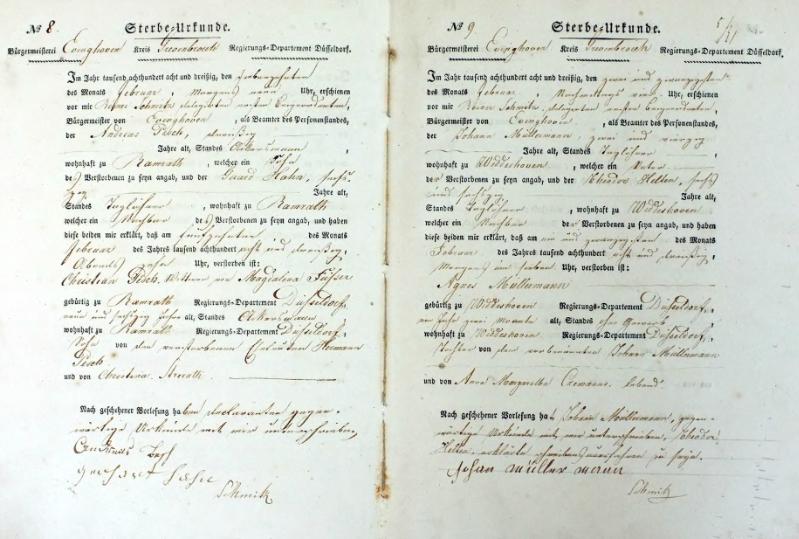 № 8. Sterbe-Urkunde.
Bürgermeisterei Evinghoven Kreis Grevenbroich Regierungs-Departement Düsseldorf.
Im Jahr tausend achthundert acht und dreißig, den
des Monats Februar, Morgens neun Uhr, erschienen
vor mir Schmitz delegirten ersten Beigeordneten,
Bürgermeister von Evinghoven, als Beamter des Personenstandes,
der Andreas Pesch, dreißig
Jahre alt, Standes Ackersmann
wohnhaft zu Ramrath, welcher ein Sohn
des Verstorbenen zu seyn angab, und der Hahn, sechs-
zig Jahre alt,
Standes Taglöhner, wohnhaft zu Ramrath
welcher ein Nachbar des Verstorbenen zu seyn angab, und haben
diese beiden mir erklärt, daß am fünfzehnten des Monats
Februar des Jahres tausend achthundert acht und dreißig,
Abends zehn Uhr, verstorben ist:
Christian Pesch, Wittwer von Magdalena
gebürtig zu Ramrath Regierungs-Departement Düsseldorf,
neun und sechszig Jahre alt, Standes Ackersmann
wohnhaft zu Ramrath Regierungs-Departement Düsseldorf,
Sohn von den verstorbenen Eheleuten Hermann
Pesch
und von Christina
Nach geschehener Vorlesung haben Declaranten gegen-
wärtige Urkunde mit mir unterschrieben,
Andreas Pesch
gerhart hahn
Schmitz
№ 9 Sterbe-Urkunde.
Bürgermeisterei Evinghoven Kreis Grevenbroich Regierungs-Departement Düsseldorf.
Im Jahr tausend achthundert acht und dreißig, den zwei und zwanzigsten
des Monats Februar, Nachmittags vier Uhr, erschienen
vor mir Schmitz, delegirten ersten Beigeordneten,
Bürgermeister von Evinghoven, als Beamter des Personenstandes,
der Johann Müllemann, zwei und vierzig
Jahre alt, Standes Taglöhner
wohnhaft zu Widdeshoven, welcher ein Vater
der Verstorbenen zu seyn angab, und der Theodor Helten, sechs
und sechszig Jahre alt,
Standes Taglöhner, wohnhaft zu Widdeshoven
welcher ein Nachbar der Verstorbenen zu seyn angab, und haben
diese beiden mir erklärt, daß am ein und zwanzigsten des Monats
Februar des Jahres tausend achthundert acht und dreißig,
Morgens um sieben Uhr, verstorben ist:
Agnes Müllemann
gebürtig zu Widdeshoven Regierungs-Departement Düsseldorf,
ein Jahr zwei Monate alt, Standes ohne Gewerb
wohnhaft zu Widdeshoven Regierungs-Departement Düsseldorf,
Tochter von dem vorbenannten Johann Müllemann
und von Anna Margaretha lebend
Nach geschehener Vorlesung hat Johann Müllemann, gegen-
wärtige Urkunde mit mir unterschrieben, Theodor
Helten erklärte schreibensunerfahren zu seyn.
Johan müller mann
Schmitz